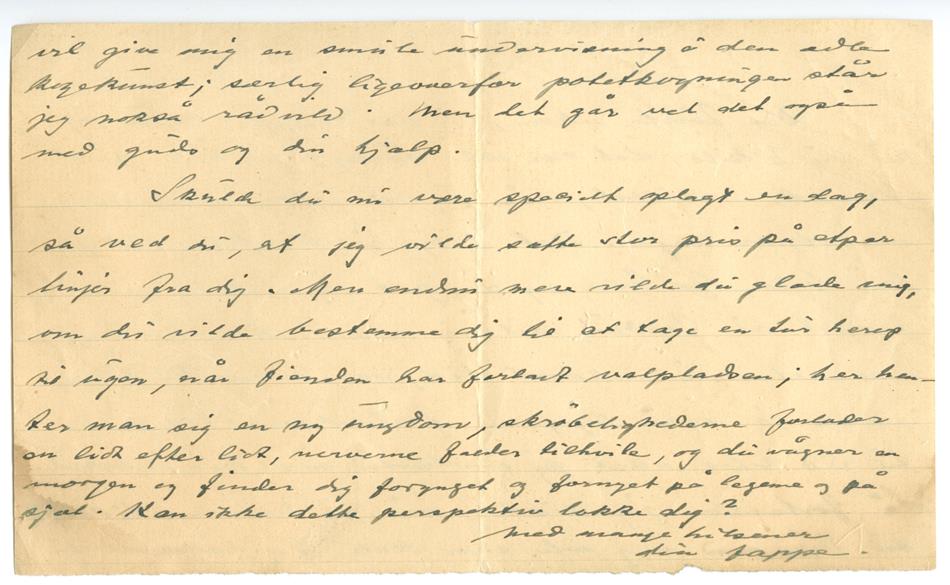 vil give mig en smule undervisning i den ædle
kogekunst; særlig ligeoverfor potetkogningen står
jeg nokså rådvild. Men det går vel det også
med guds og din hjælp.
Skulde du nu være specielt oplagt en dag,
så ved du, at jeg vilde sætte stor pris på etpar
linjer fra dig. Men endnu mere vilde du glæde mig,
om du vilde bestemme dig til at tage en tur herop
til ugen, når fienden har forladt valpladsen; her hen-
ter man sig en ny ungdom, skrøbelighederne forlader
en lidt efter lidt, nerverne falder tilhvile, og du vågner en
morgen og finder dig forynget og fornyet på legeme og på
sjæl. Kan ikke dette perspektiv lokke dig?
Med mange hilsener
din Jappe.